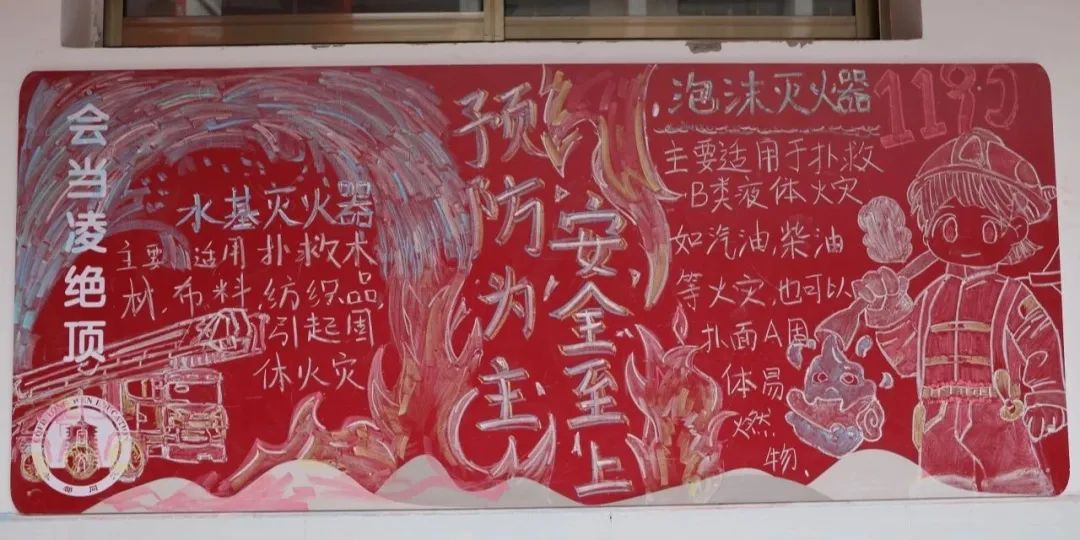 会当凌绝顶
水基灭火器
主要 适用 扑救术
材,布料,纺织品,
引起固
体火灾
预防为主
安全至上
119
泡沫灭火器
主要适用于扑救
B类液体火灾
如汽油,柴油
等火灾,也可以
扎面A周
体易
燃
物、